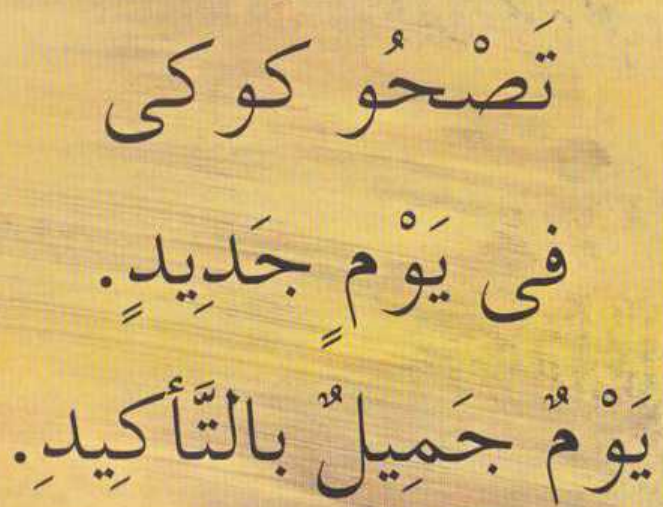 تَصْحُو كوكى
فى يَوْمٍ جَدِيدٍ.
يَوْمٌ جَمِيلٌ بالتَّأكِيدِ.